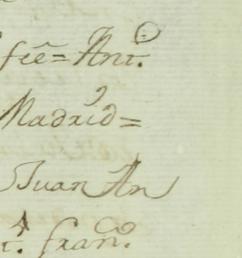 feē = Ant.º
Madrid =
Juan An
t. fran.º